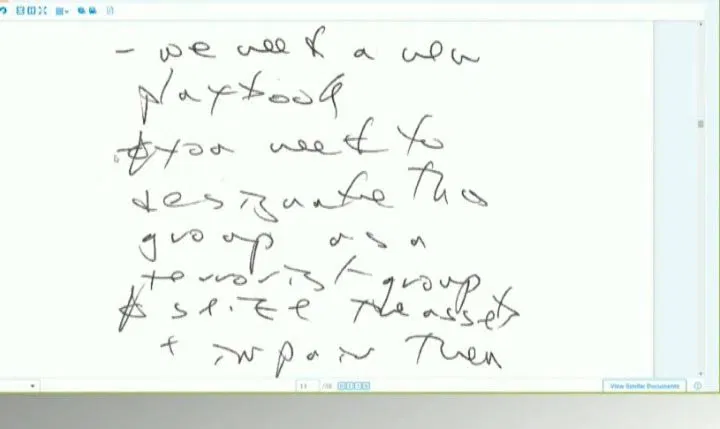 - we need a new
playbook
* you need to
designate this
group as a
terrorist group
* seize the assets
+ impair them
11
View Similar Documents